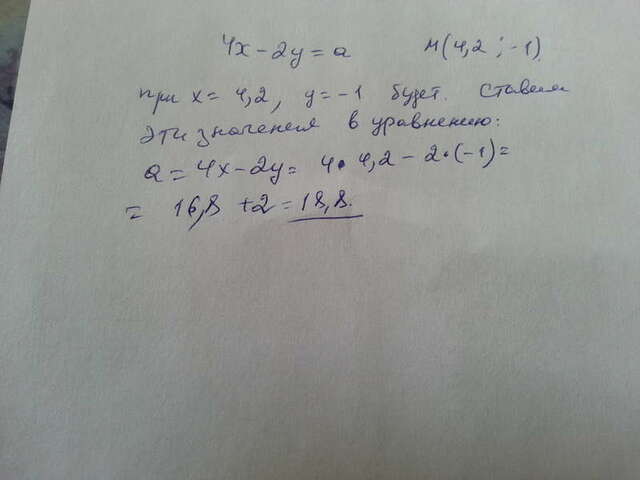 4x - 2y = a M(4,2 ; -1)
при x = 4,2, y = -1 будет. Ставим
эти значения в уравнению:
a = 4x - 2y = 4 • 4,2 - 2 • (-1) =
= 16,8 + 2 = 18,8.